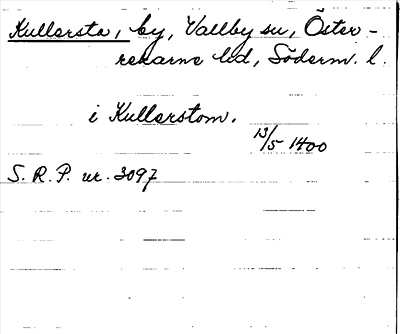 Kullersta, by, Vallby sn, Öster-
rekarne hd, Söderm. l.
i Kullerstom.
13/5 1400
S. R. P. nr. 3097